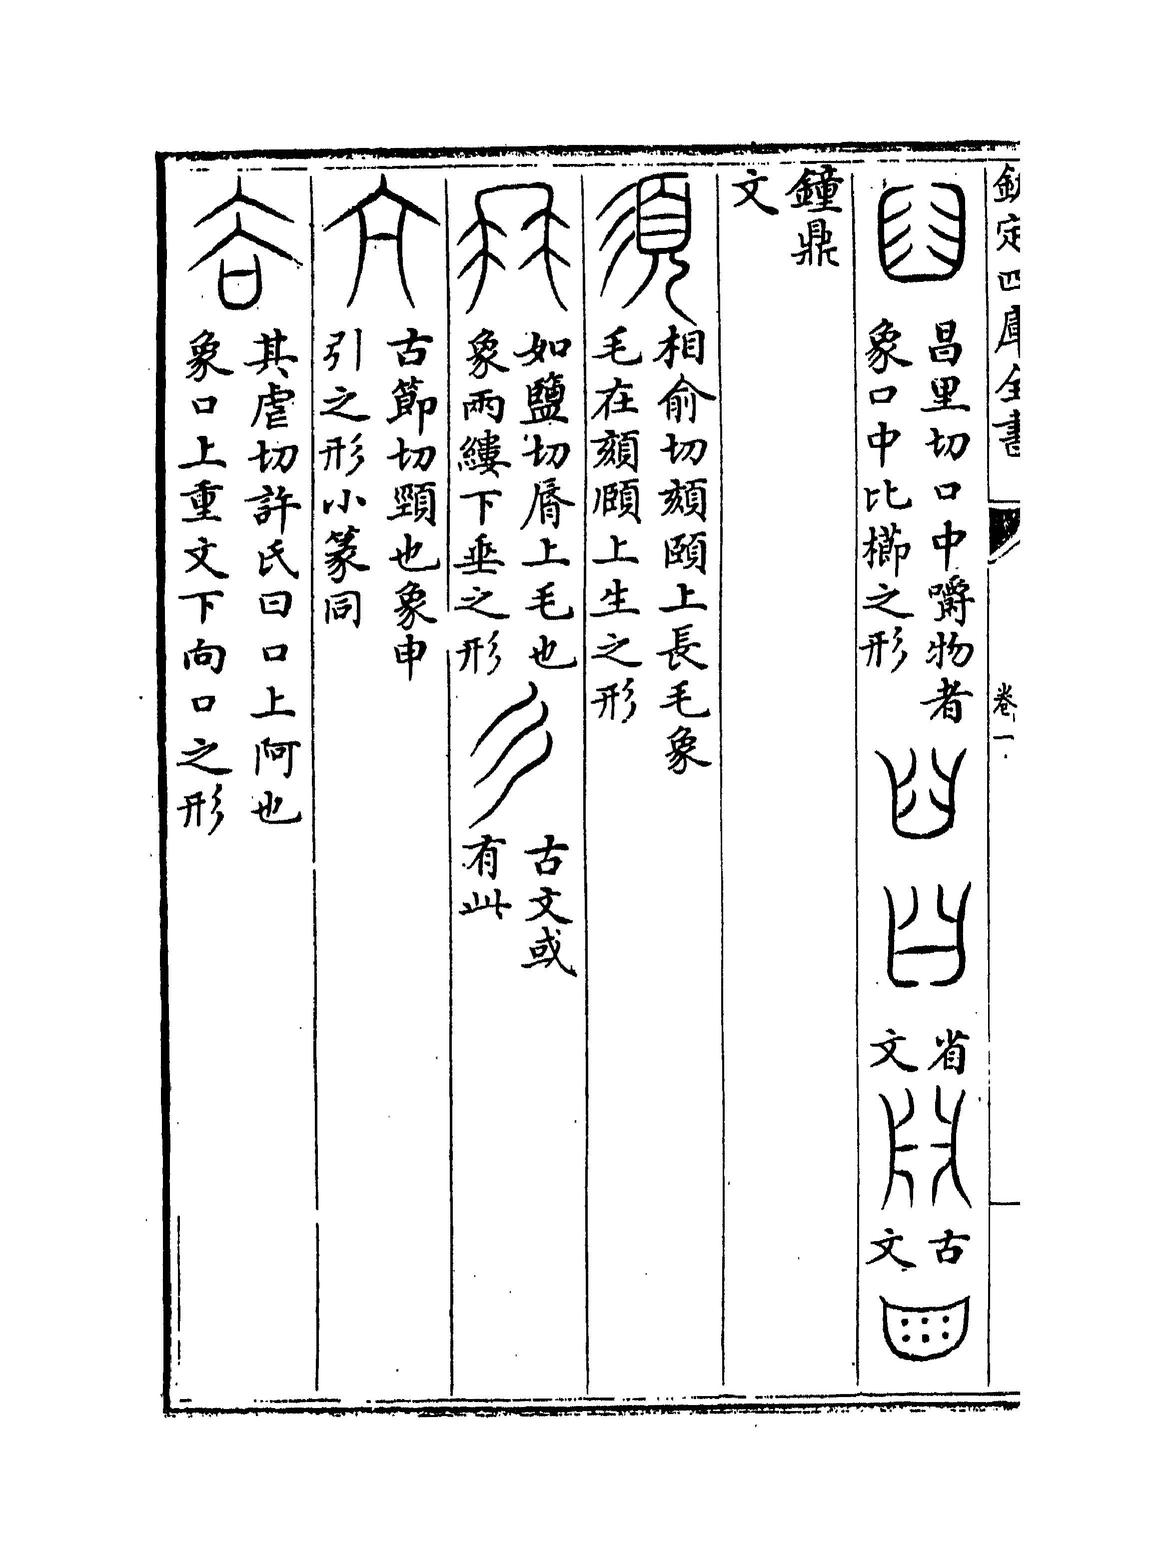 欽定四庫全書
卷一
昌里切口中嚼物者
象口中比櫛之形
省
文
古
文
鐘鼎
文
須
相俞切頦頤上長毛象
毛在頦頤上生之形
冄
如鹽切脣上毛也
象兩縷下垂之形
古文或
有此
亢
古節切頸也象申
引之形小篆同
𧮫
其虐切許氏曰口上阿也
象口上重文下向口之形